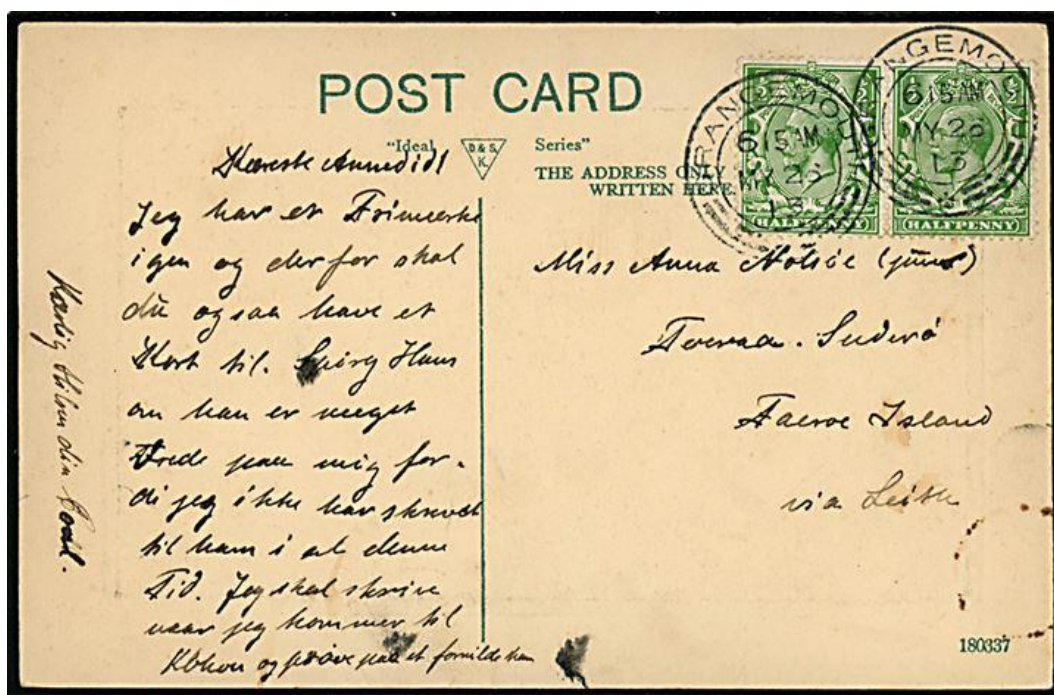 POST CARD
"Ideal D & S. K. Series"
THE ADDRESS ONLY
WRITTEN HERE.
GRANGEMOUTH
615 AM
MY 26
13
GRANGEMOUTH
615 AM
MY 26
13
HALFPENNY
HALFPENNY
Kæreste
Jeg har et Frimærke
igen og derfor skal
du ogsaa have et
Kort til. Spørg Hans
om han er meget
Vrede paa mig for-
di jeg ikke har skrevet
til ham i al denne
Tid. Jeg skal skrive
naar jeg kommer til
Kbhvn og prøve paa at formilde ham
Kærlig Hilsen din
Miss Anna Nolsöe (junior)
Suderö
Faeroe Island
via Leith
180337